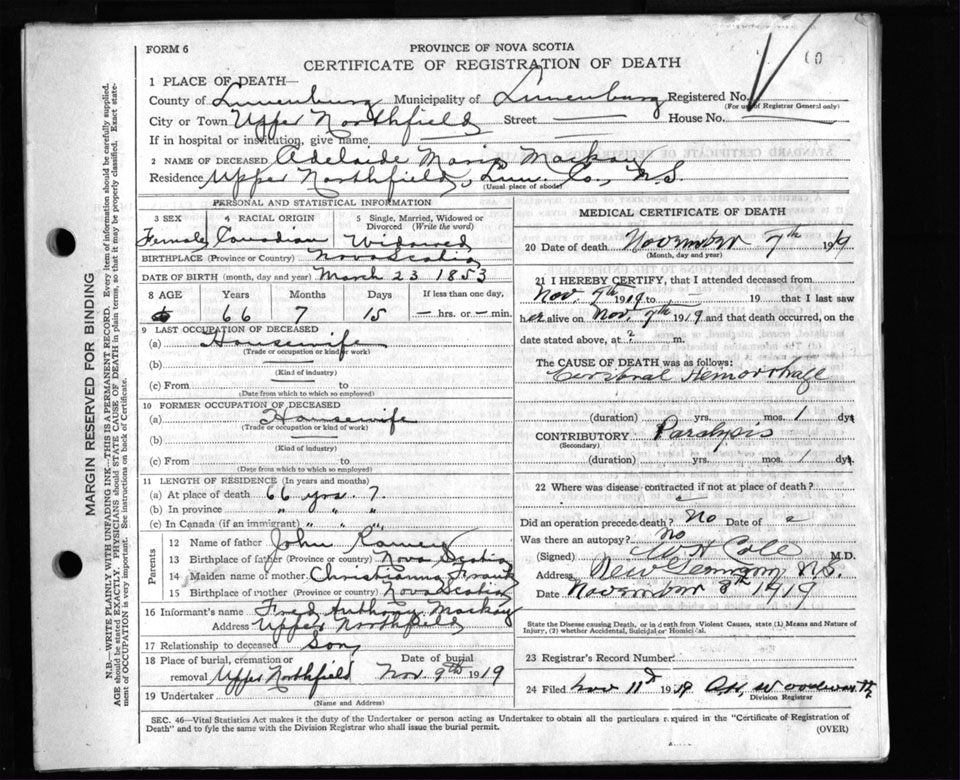 FORM 6
PROVINCE OF NOVA SCOTIA
CERTIFICATE OF REGISTRATION OF DEATH
1 PLACE OF DEATH—
County of Lunenburg Municipality of Lunenburg Registered No.
(For use of Registrar General only)
City or Town Upper Northfield Street House No.
If in hospital or institution, give name
2 NAME OF DECEASED Adelaide Maria Mackay
Residence Upper Northfield, Lun. Co., N.S.
(Usual place of abode)
PERSONAL AND STATISTICAL INFORMATION
3 SEX 4 RACIAL ORIGIN 5 Single, Married, Widowed or Divorced (Write the word)
Female Canadian Widowed
BIRTHPLACE (Province or Country) Nova Scotia
DATE OF BIRTH (month, day and year) March 23 1853
8 AGE Years Months Days If less than one day,
66 7 15 — hrs. or — min.
9 LAST OCCUPATION OF DECEASED
(a) Housewife
(Trade or occupation or kind of work)
(b)
(Kind of industry)
(c) From to
(Date from which to which so employed)
10 FORMER OCCUPATION OF DECEASED
(a) Housewife
(Trade or occupation or kind of work)
(b)
(Kind of industry)
(c) From to
(Date from which to which so employed)
11 LENGTH OF RESIDENCE (In years and months)
(a) At place of death 66 yrs. 7.
(b) In province " " "
(c) In Canada (if an immigrant) " " "
Parents
12 Name of father John Ramey
13 Birthplace of father (Province or Country) Nova Scotia
14 Maiden name of mother Christianna Frank
15 Birthplace of mother (Province or country) Nova Scotia
16 Informant's name Fred Anthony Mackay
Address Upper Northfield
17 Relationship to deceased Son
18 Place of burial, cremation or removal Upper Northfield Date of burial Nov. 9th 1919
19 Undertaker
(Name and Address)
MEDICAL CERTIFICATE OF DEATH
20 Date of death November 7th 1919
(Month, day and year)
21 I HEREBY CERTIFY, that I attended deceased from
Nov. 7th 1919 to 19 that I last saw
her alive on Nov. 7th 1919 and that death occurred, on
date stated above, at ? m.
The CAUSE OF DEATH was as follows:
Cerebral Hemorrhage
(duration) yrs. mos. 1 dys.
CONTRIBUTORY Paralysis
(Secondary)
(duration) yrs. mos. 1 dys.
22 Where was disease contracted if not at place of death?
Did an operation precede death? No Date of
Was there an autopsy? No
(Signed) W H Cole M.D.
Address New Germany N.S.
Date November 8th 1919
State the Disease causing Death, or in death from Violent Causes, state (1) Means and Nature of Injury, (2) whether Accidental, Suicidal or Homicidal.
23 Registrar's Record Number
24 Filed Nov 11th 1919 Woodworth
Division Registrar
SEC. 46—Vital Statistics Act makes it the duty of the Undertaker or person acting as Undertaker to obtain all the particulars required in the "Certificate of Registration of
Death" and to fyle the same with the Division Registrar who shall issue the burial permit. (OVER)
MARGIN RESERVED FOR BINDING
N.B.—WRITE PLAINLY WITH UNFADING INK—THIS IS A PERMANENT RECORD. Every item of information should be carefully supplied.
AGE should be stated EXACTLY. PHYSICIANS should STATE CAUSE OF DEATH in plain terms, so that it may be properly classified. Exact statement of OCCUPATION is very important. See instructions on back of Certificate.